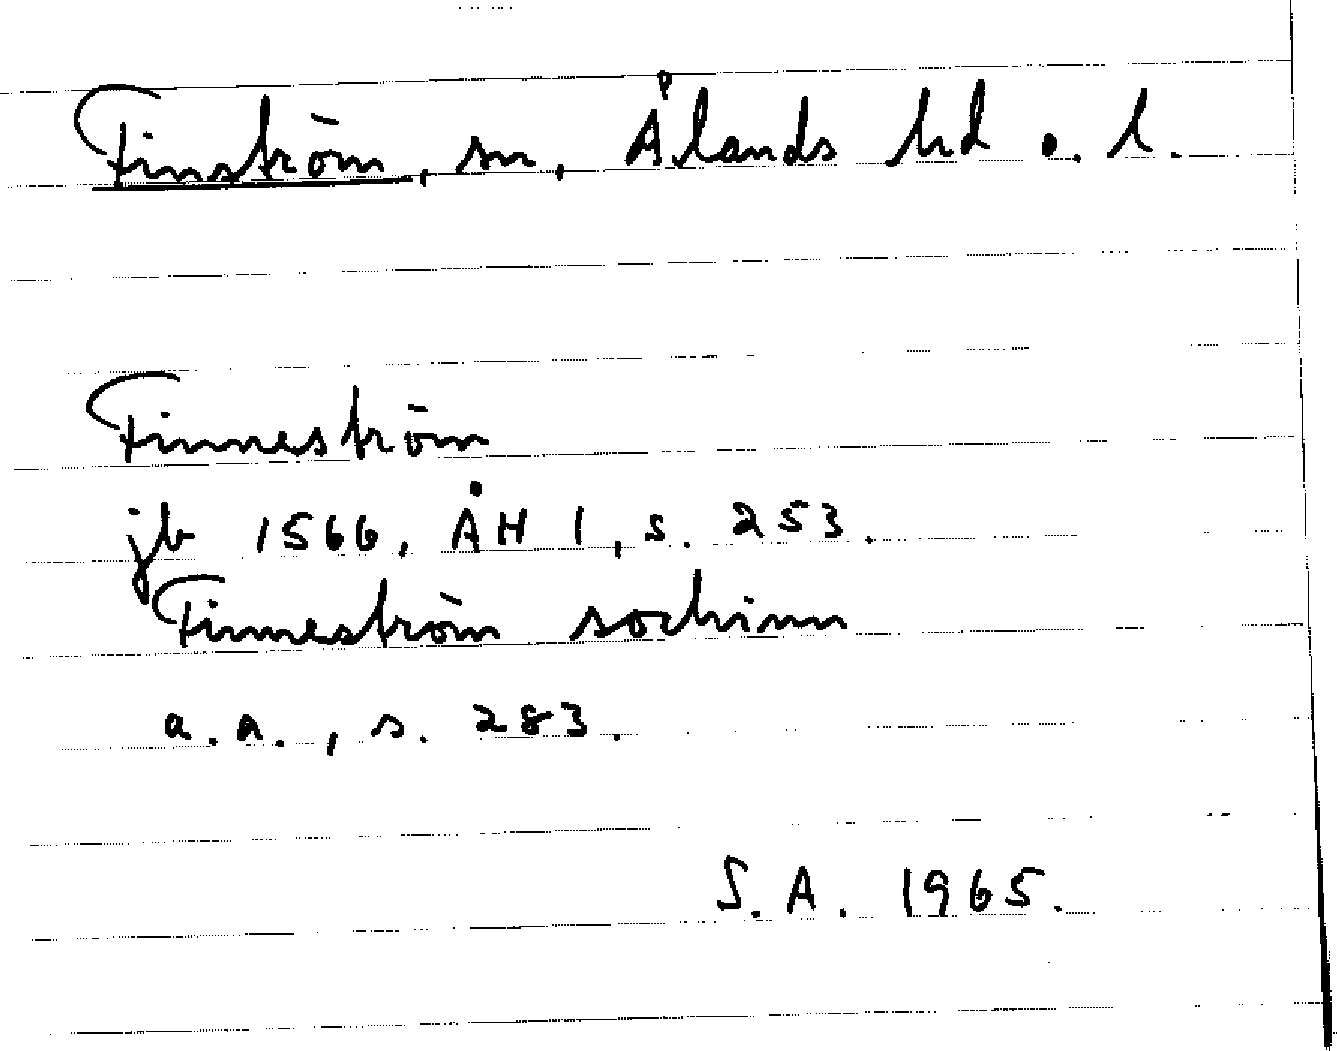 Finström, sn, Ålands hd o. l.
Finneström
jb 1566, ÅH I, s. 253.
Finneström sochnn
a.a., s. 283.
S.A. 1965.